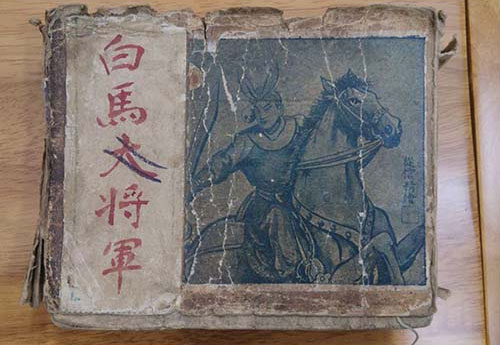 白馬大將軍